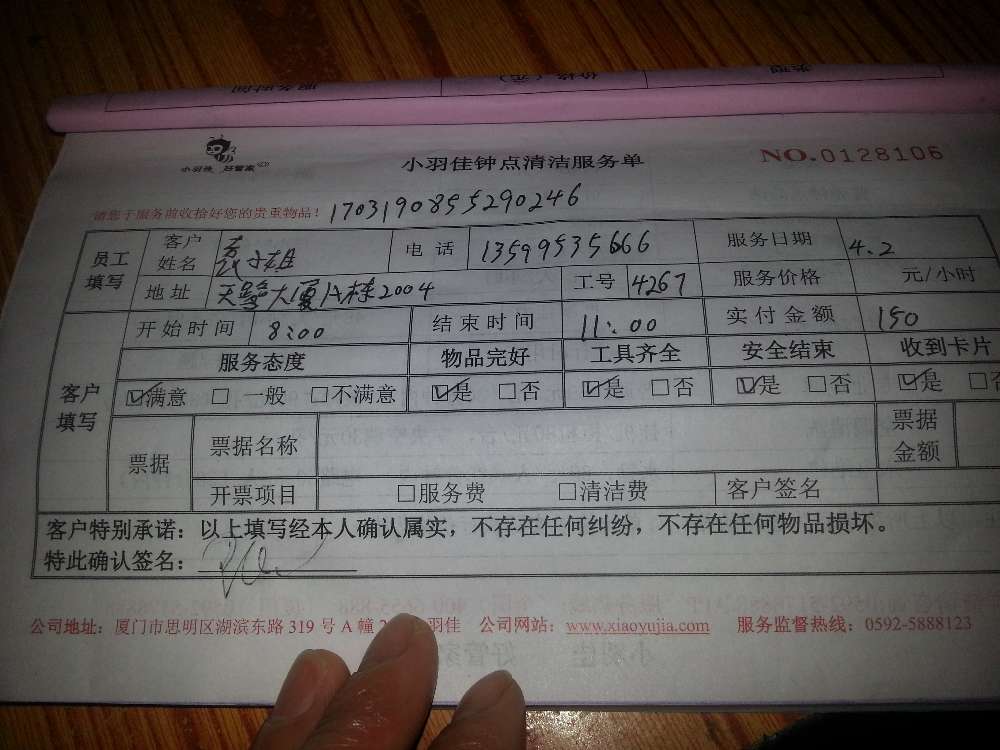 小羽佳 好管家
小羽佳钟点清洁服务单
NO.0128106
请您于服务前收拾好您的贵重物品！ 1703190855290246
员工填写 客户姓名 小姐 电话 13599535666 服务日期 4.2
地址 天鹭大厦A栋2004 工号 4267 服务价格 元/小时
客户填写 开始时间 8:00 结束时间 11:00 实付金额 150
服务态度 物品完好 工具齐全 安全结束 收到卡片
☑满意 □一般 □不满意 ☑是 □否 ☑是 □否 ☑是 □否 ☑是 □否
票据 票据名称 票据金额
开票项目 □服务费 □清洁费 客户签名
客户特别承诺：以上填写经本人确认属实，不存在任何纠纷，不存在任何物品损坏。
特此确认签名：
公司地址：厦门市思明区湖滨东路 319 号 A 幢 2 羽佳 公司网站：www.xiaoyujia.com 服务监督热线：0592-5888123